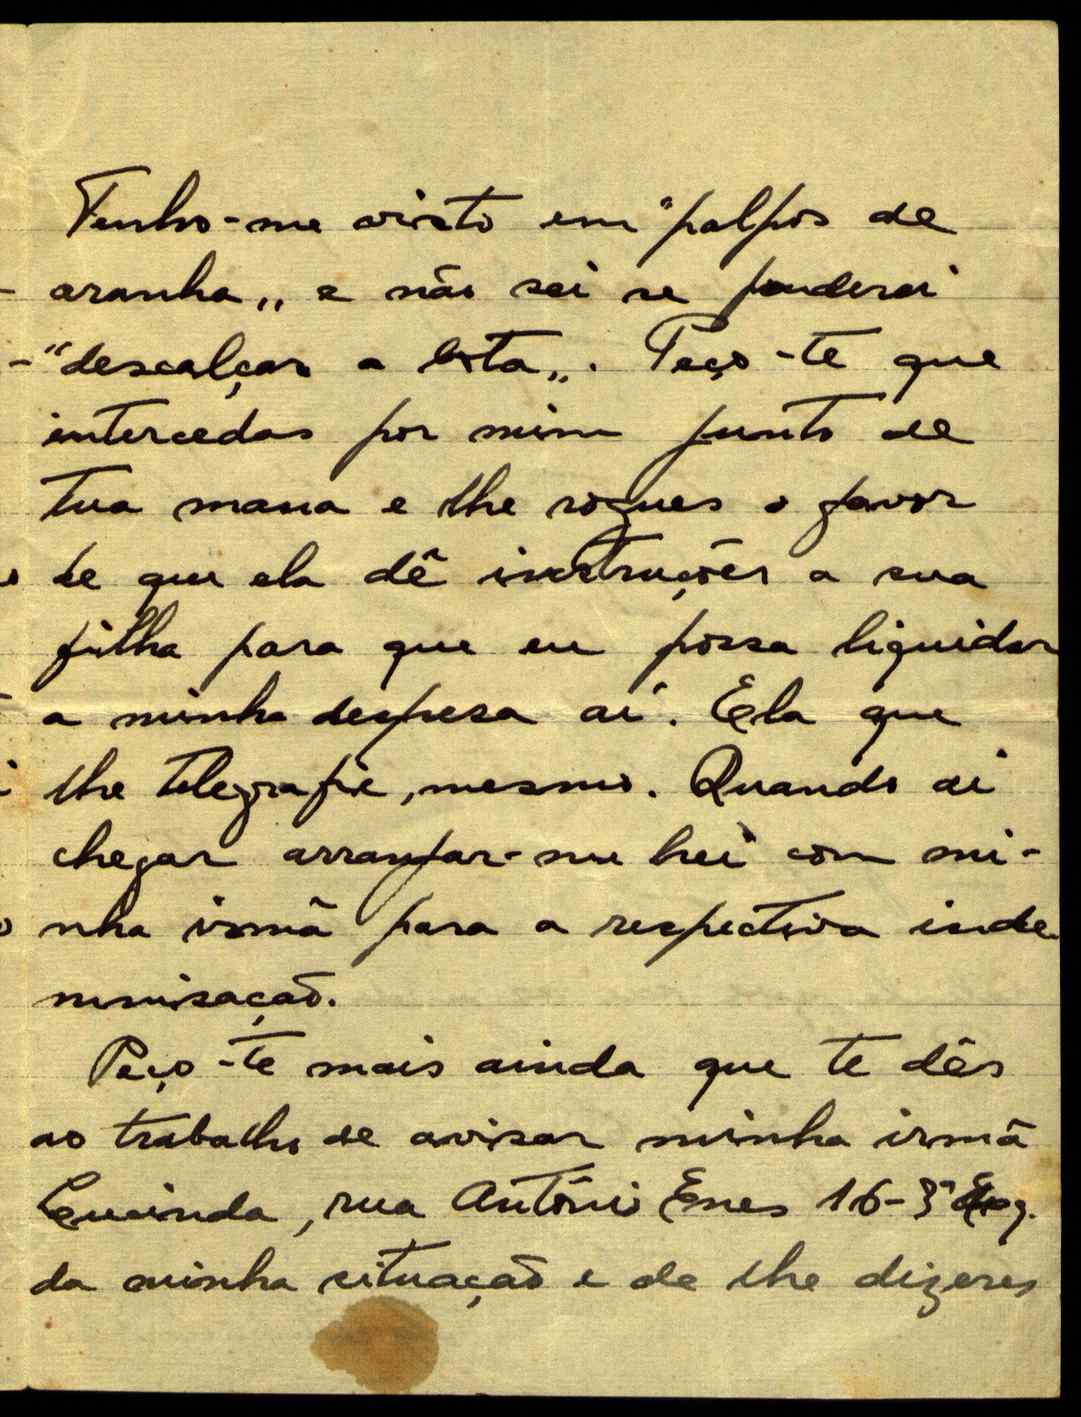 Tenho-me visto em "palpos de
aranha„ e não sei se poderei
"descalçar a bota„. Peço-te que
intercedas por mim junto de
tua mana e lhe rogues o favor
de que ela dê instruções a sua
filha para que eu possa liquidar
a minha despesa aí. Ela que
lhe telegrafe, mesmo. Quando aí
chegar arranjar-me hei com mi-
nha irmã para a respectiva inde-
mnisação.
Peço-te mais ainda que te dês
ao trabalho de avisar minha irmã
rua António Enes 16-3º Esq.
da minha situação e de lhe dizeres